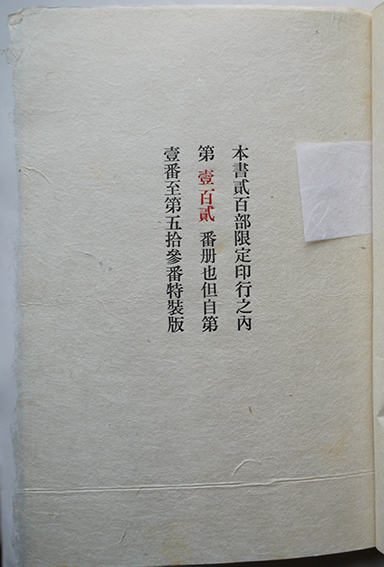 本書貳百部限定印行之內
第壹百貳番册也但自第
壹番至第五拾參番特裝版